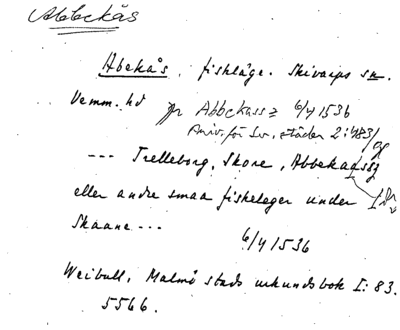 Abbekås
Abekås, fiskläge. Skivarps sn.
Vemm. hd pr Abbekass = 6/4 1536
Priv. för Sv. städer 2:483/
--- Trelleborg, Skone, Abbekaass
eller andre smaa fiskeleger under
Skaane ---
6/4 1536
Weibull, Malmö stads urkundsbok I: 83.
5566.